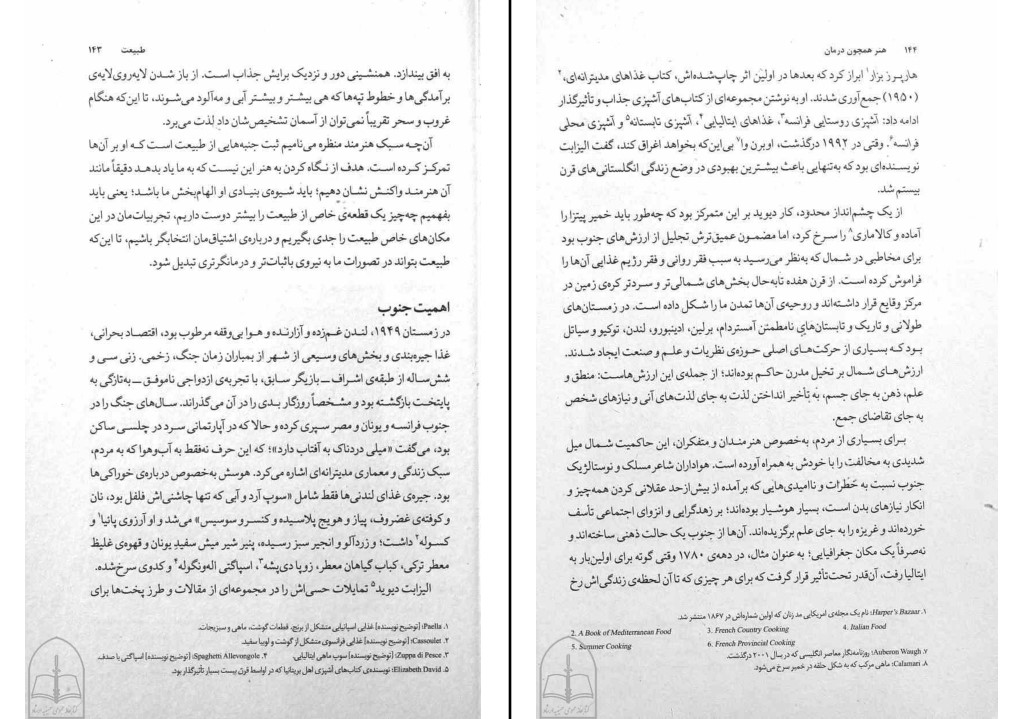 طبیعت ۱۴۳
به افق بیندازد. همنشینی دور و نزدیک برایش جذاب است. از باز شدن لایه‌روی‌لایه‌ی
برآمدگی‌ها و خطوط تپه‌ها که هی بیشتر و بیشتر آبی و مه‌آلود می‌شوند، تا این‌که هنگام
غروب و سحر تقریباً نمی‌توان از آسمان تشخیص‌شان داد لذت می‌برد.
آن‌چه سبک هنرمند منظره می‌نامیم ثبت جنبه‌هایی از طبیعت است که او بر آن‌ها
تمرکز کرده است. هدف از نگاه کردن به هنر این نیست که به ما یاد بدهد دقیقاً مانند
آن هنرمند واکنش نشان دهیم؛ باید شیوه‌ی بنیادی او الهام‌بخش ما باشد؛ یعنی باید
بفهمیم چه‌چیز یک قطعه‌ی خاص از طبیعت را بیشتر دوست داریم، تجربیات‌مان در این
مکان‌های خاص طبیعت را جدی بگیریم و درباره‌ی اشتیاق‌مان انتخابگر باشیم، تا این‌که
طبیعت بتواند در تصورات ما به نیروی باثبات‌تر و درمانگرتری تبدیل شود.
اهمیت جنوب
در زمستان ۱۹۴۹، لندن غم‌زده و آزارنده و هوا بی‌وقفه مرطوب بود، اقتصاد بحرانی،
غذا جیره‌بندی و بخش‌های وسیعی از شهر از بمباران زمان جنگ، زخمی. زنی سی و
شش‌ساله از طبقه‌ی اشراف ــ بازیگر سابق، با تجربه‌ی ازدواجی ناموفق ــ به‌تازگی به
پایتخت بازگشته بود و مشخصاً روزگار بدی را در آن می‌گذراند. سال‌های جنگ را در
جنوب فرانسه و یونان و مصر سپری کرده و حالا که در آپارتمانی سرد در چلسی ساکن
بود، می‌گفت «میلی دردناک به آفتاب دارد»؛ که این حرف نه‌فقط به آب‌وهوا که به مردم،
سبک زندگی و معماری مدیترانه‌ای اشاره می‌کرد. هوسش به‌خصوص درباره‌ی خوراکی‌ها
بود. جیره‌ی غذای لندنی‌ها فقط شامل «سوپ آرد و آبی که تنها چاشنی‌اش فلفل بود، نان
و کوفته‌ی غضروف، پیاز و هویج پلاسیده و کنسرو سوسیس» می‌شد و او آرزوی پائیا۱ و
کسوله۲ داشت؛ و زردآلو و انجیر سبز رسیده، پنیر شیر میش سفید یونان و قهوه‌ی غلیظ
معطر ترکی، کباب گیاهان معطر، زوپا دی‌پشه۳، اسپاگتی اله‌ونگوله۴ و کدوی سرخ‌شده.
الیزابت دیوید۵ تمایلات حسی‌اش را در مجموعه‌ای از مقالات و طرز پخت‌ها برای
۱. Paella؛ [توضیح نویسنده] غذایی اسپانیایی متشکل از برنج، قطعات گوشت، ماهی و سبزیجات.
۲. Cassoulet؛ [توضیح نویسنده] غذایی فرانسوی متشکل از گوشت و لوبیا سفید.
۳. Zuppa di Pesce؛ [توضیح نویسنده] سوپ ماهی ایتالیایی. ۴. Spaghetti Allevongole؛ [توضیح نویسنده] اسپاگتی با صدف.
۵. Elizabeth David؛ نویسنده‌ی کتاب‌های آشپزی اهل بریتانیا که در اواسط قرن بیست بسیار تأثیرگذار بود.
۱۴۴ هنر همچون درمان
هارپرز بزار۱ ابراز کرد که بعدها در اولین اثر چاپ‌شده‌اش، کتاب غذاهای مدیترانه‌ای،۲
(۱۹۵۰) جمع‌آوری شدند. او به نوشتن مجموعه‌ای از کتاب‌های آشپزی جذاب و تأثیرگذار
ادامه داد: آشپزی روستایی فرانسه۳، غذاهای ایتالیایی۴، آشپزی تابستانه۵ و آشپزی محلی
فرانسه۶. وقتی در ۱۹۹۲ درگذشت، اوبرن وا۷ بی‌این‌که بخواهد اغراق کند، گفت الیزابت
نویسنده‌ای بود که به‌تنهایی باعث بیشترین بهبودی در وضع زندگی انگلستانی‌های قرن
بیستم شد.
از یک چشم‌انداز محدود، کار دیوید بر این متمرکز بود که چه‌طور باید خمیر پیتزا را
آماده و کالاماری۸ را سرخ کرد، اما مضمون عمیق‌ترش تجلیل از ارزش‌های جنوب بود
برای مخاطبی در شمال که به‌نظر می‌رسید به سبب فقر روانی و فقر رژیم غذایی آن‌ها را
فراموش کرده است. از قرن هفده تابه‌حال بخش‌های شمالی‌تر و سردتر کره‌ی زمین در
مرکز وقایع قرار داشته‌اند و روحیه‌ی آن‌ها تمدن ما را شکل داده است. در زمستان‌های
طولانی و تاریک و تابستان‌های نامطمئن آمستردام، برلین، ادینبورو، لندن، توکیو و سیاتل
بود که بسیاری از حرکت‌های اصلی حوزه‌ی نظریات و علم و صنعت ایجاد شدند.
ارزش‌های شمال بر تخیل مدرن حاکم بوده‌اند؛ از جمله‌ی این ارزش‌هاست: منطق و
علم، ذهن به جای جسم، به تأخیر انداختن لذت به جای لذت‌های آنی و نیازهای شخص
به جای تقاضای جمع.
برای بسیاری از مردم، به‌خصوص هنرمندان و متفکران، این حاکمیت شمال میل
شدیدی به مخالفت را با خودش به همراه آورده است. هواداران شاعر مسلک و نوستالژیک
جنوب نسبت به خطرات و ناامیدی‌هایی که برآمده از بیش‌ازحد عقلانی کردن همه‌چیز و
انکار نیازهای بدن است، بسیار هوشیار بوده‌اند؛ بر زهدگرایی و انزوای اجتماعی تأسف
خورده‌اند و غریزه را به جای علم برگزیده‌اند. آن‌ها از جنوب یک حالت ذهنی ساخته‌اند و
نه‌صرفاً یک مکان جغرافیایی؛ به عنوان مثال، در دهه‌ی ۱۷۸۰ وقتی گوته برای اولین‌بار به
ایتالیا رفت، آن‌قدر تحت‌تأثیر قرار گرفت که برای هر چیزی که تا آن لحظه‌ی زندگی‌اش رخ
۱. Harper's Bazaar؛ نام یک مجله‌ی امریکایی مد زنان که اولین شماره‌اش در ۱۸۶۷ منتشر شد.
2. A Book of Mediterranean Food 3. French Country Cooking 4. Italian Food
5. Summer Cooking 6. French Provincial Cooking
۷. Auberon Waugh؛ روزنامه‌نگار معاصر انگلیسی که در سال ۲۰۰۱ درگذشت.
۸. Calamari؛ ماهی مرکب که به شکل حلقه در خمیر سرخ می‌شود.